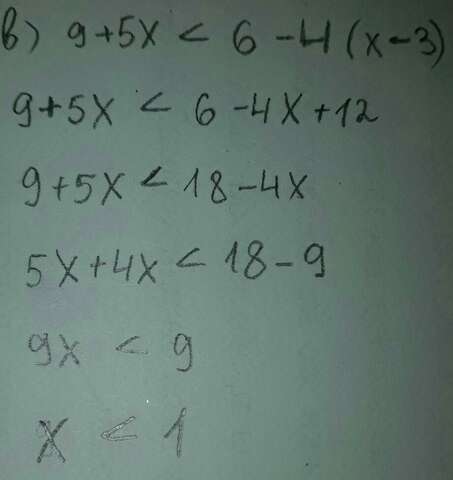 в) 9+5x < 6-4(x-3)
9+5x < 6-4x+12
9+5x < 18-4x
5x+4x < 18-9
9x < 9
x < 1